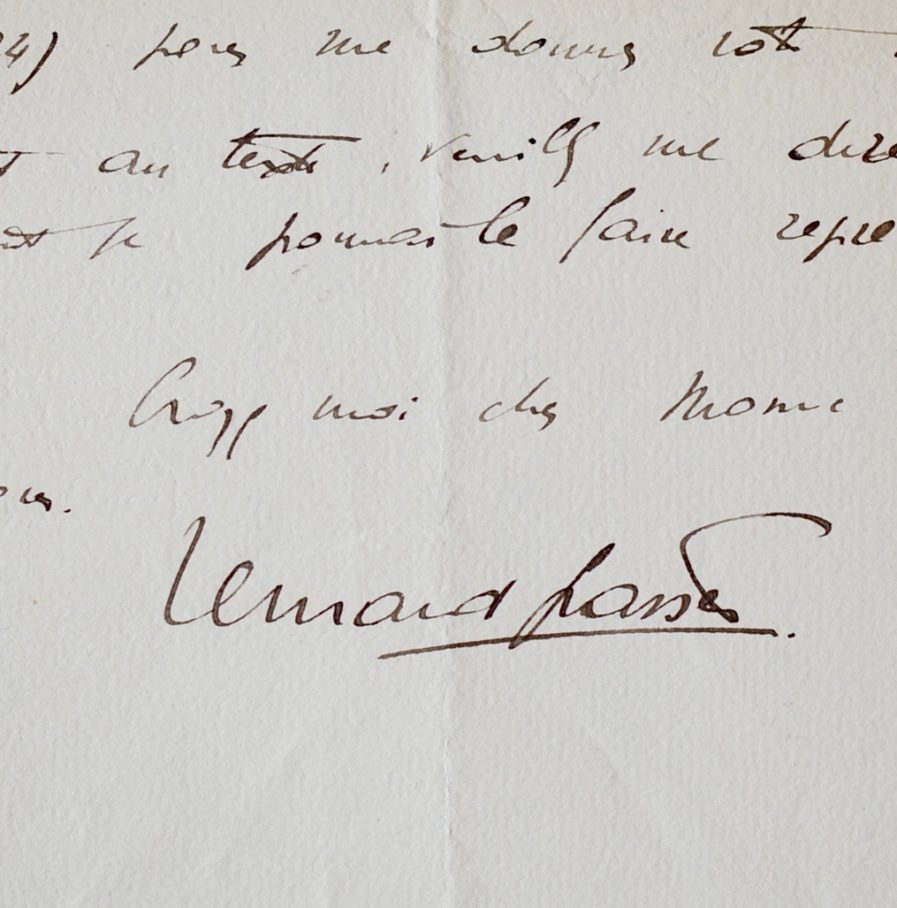 24) pour me donner votre
au texte, veuillez me dire
je pourrais le faire repre
Croyez moi cher Monsie
Bernard Grasset